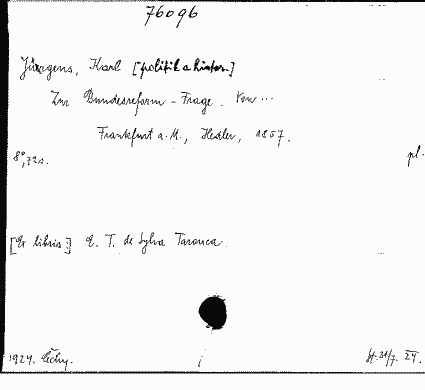 76096
Jürgens, Karl [politik a histor.]
Zur Bundesreform - Frage. Von ...
Frankfurt a. M., Hedler, 1857.
8°, 72 s. pl.
[Ex libris:] E. T. de Sylva Tarouca.
1924. Čechy. 31/7. 24.